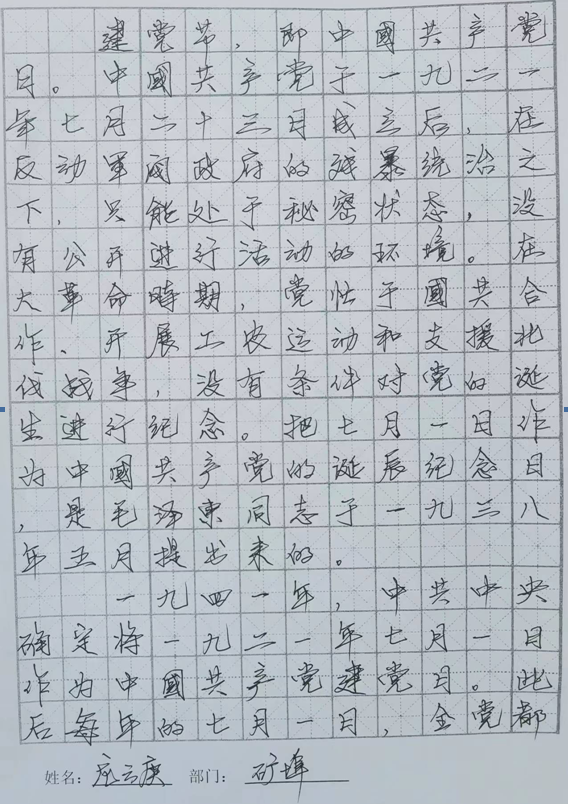 建党节，即中國共产党
日。中國共产党于一九二一
年七月二十三日成立后，在
反动軍阀政府的残暴统治之
下，只能处于秘密状态，没
有公开进行活动的环境。在
大革命時期，党忙于國共合
作、开展工农运动和支援北
伐战争，没有条件对党的诞
生进行纪念。把七月一日作
为中國共产党的诞辰纪念日
，是毛泽東同志于一九三八
年五月提出来的。
一九四一年，中共中央
确定将一九二一年七月一日
作为中國共产党建党日。此
后每年的七月一日，全党都
姓名： 部门：